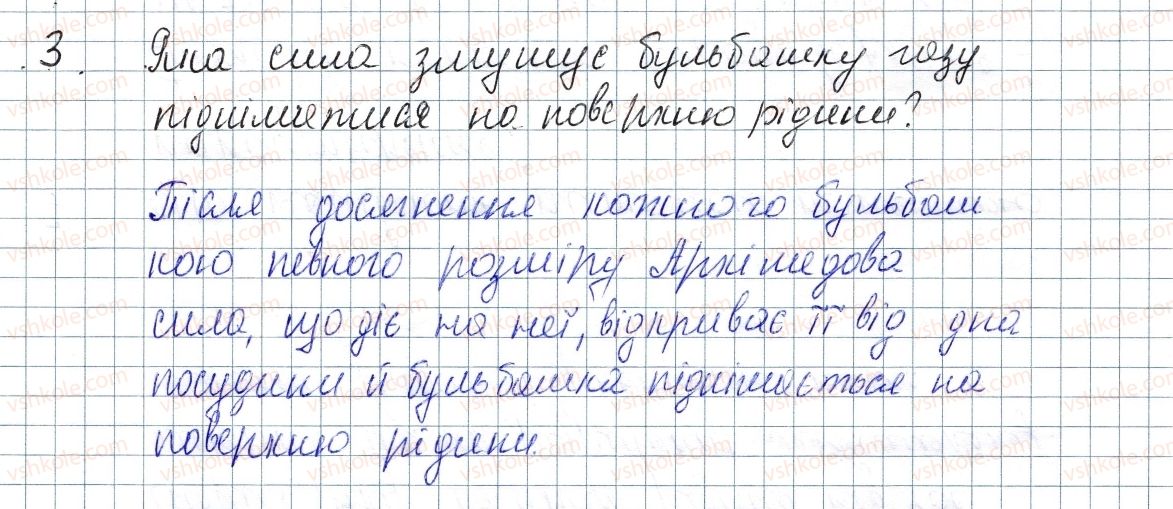 3. Яка сила змушує бульбашку газу
підніматися на поверхню рідини?
Після досягнення кожного бульбаш
кою певного розміру Архімедова
сила, що діє на неї, відкриває її від дна
посудини й бульбашка піднімається на
поверхню рідини.